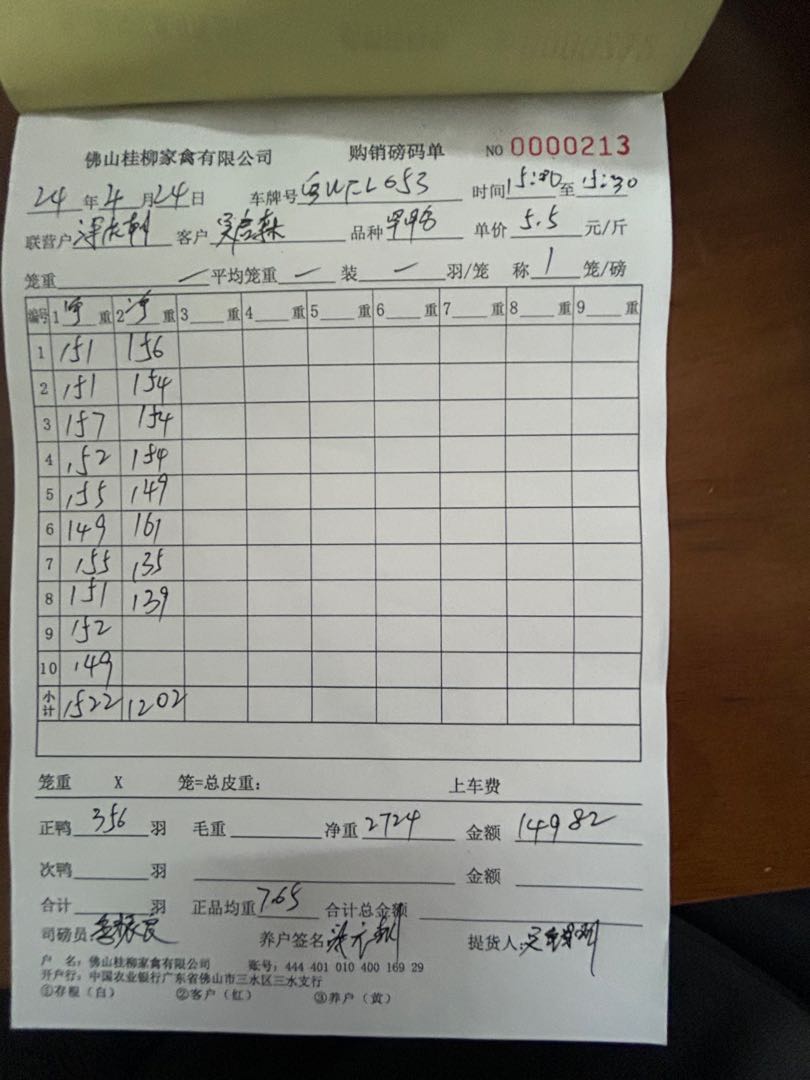 佛山桂柳家禽有限公司 购销磅码单 NO 0000213
24 年 4 月 24 日 车牌号 时间 15:00 至 15:30
联营户 客户 品种 单价 5.5 元/斤
笼重 一 平均笼重 一 装 一 羽/笼 称 1 笼/磅
编号 1 净 重 2 净 重 3 重 4 重 5 重 6 重 7 重 8 重 9 重
1 151 156
2 151 154
3 157 154
4 152 154
5 155 149
6 149 161
7 155 135
8 151 139
9 152
10 149
小计 1522 1202
笼重 X 笼=总皮重： 上车费
正鸭 356 羽 毛重 净重 2724 金额 14982
次鸭 羽 金额
合计 羽 正品均重 7.65 合计总金额
司磅员 养户签名 提货人：
户 名：佛山桂柳家禽有限公司 账号：444 401 010 400 169 29
开户行：中国农业银行广东省佛山市三水区三水支行
①存根（白） ②客户（红） ③养户（黄）